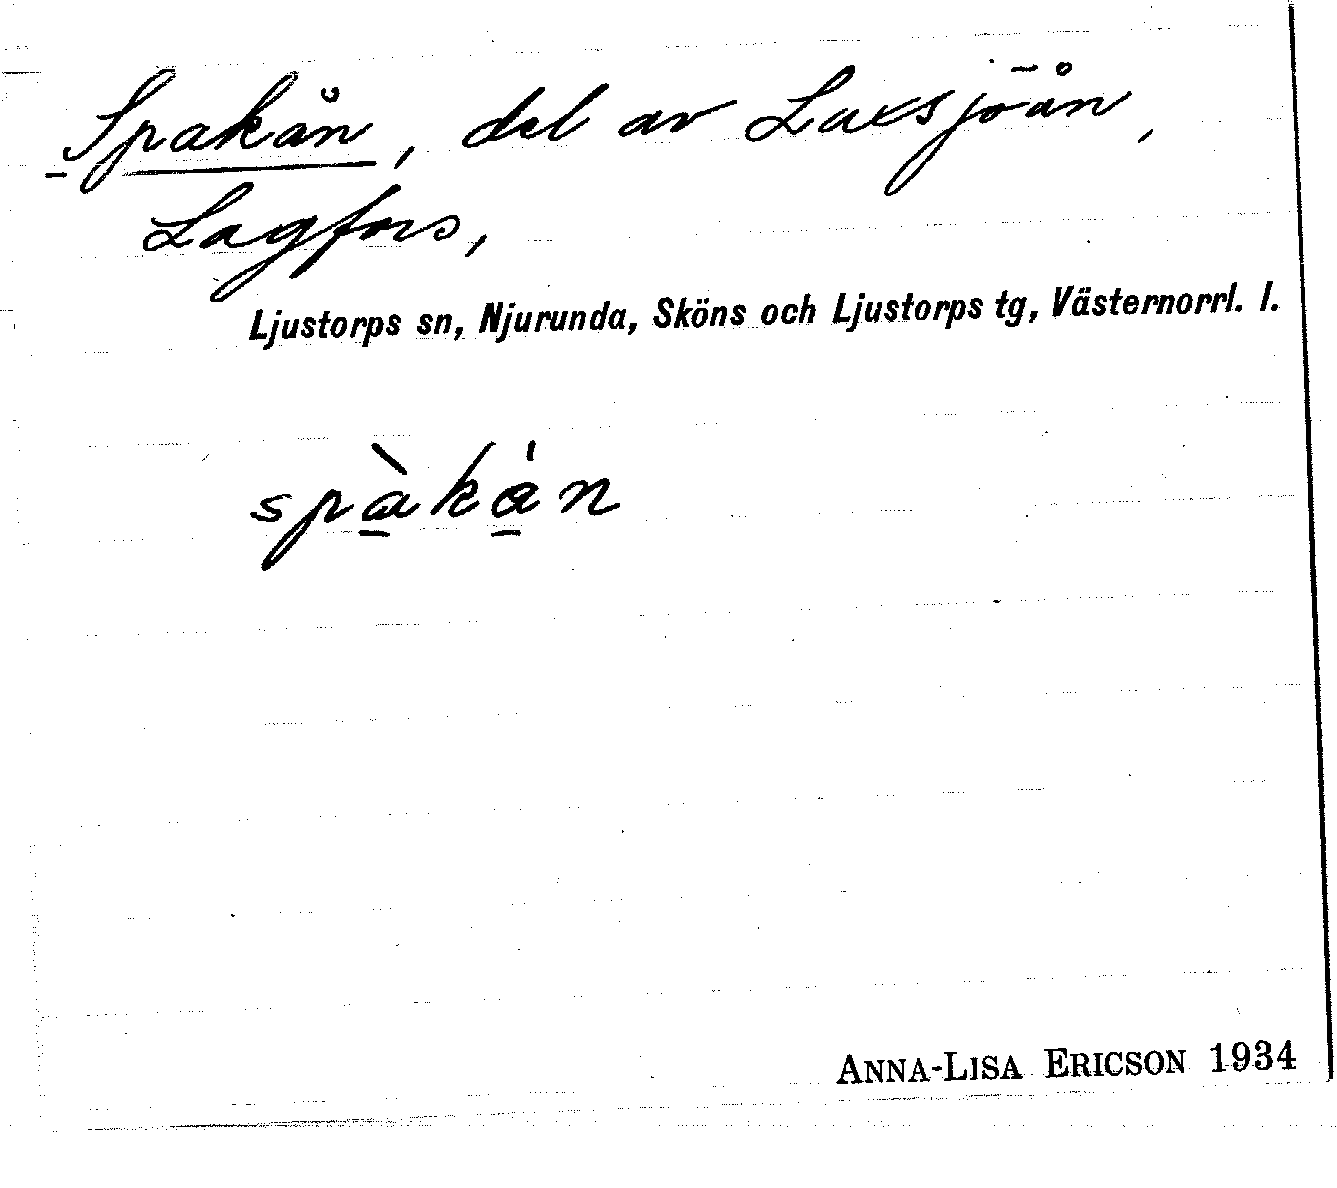 Spakån, del av Laxsjöån,
Lagfors,
Ljustorps sn, Njurunda, Sköns och Ljustorps tg, Västernorrl. l.
spà̱ka̱̍n
ANNA-LISA ERICSON 1934